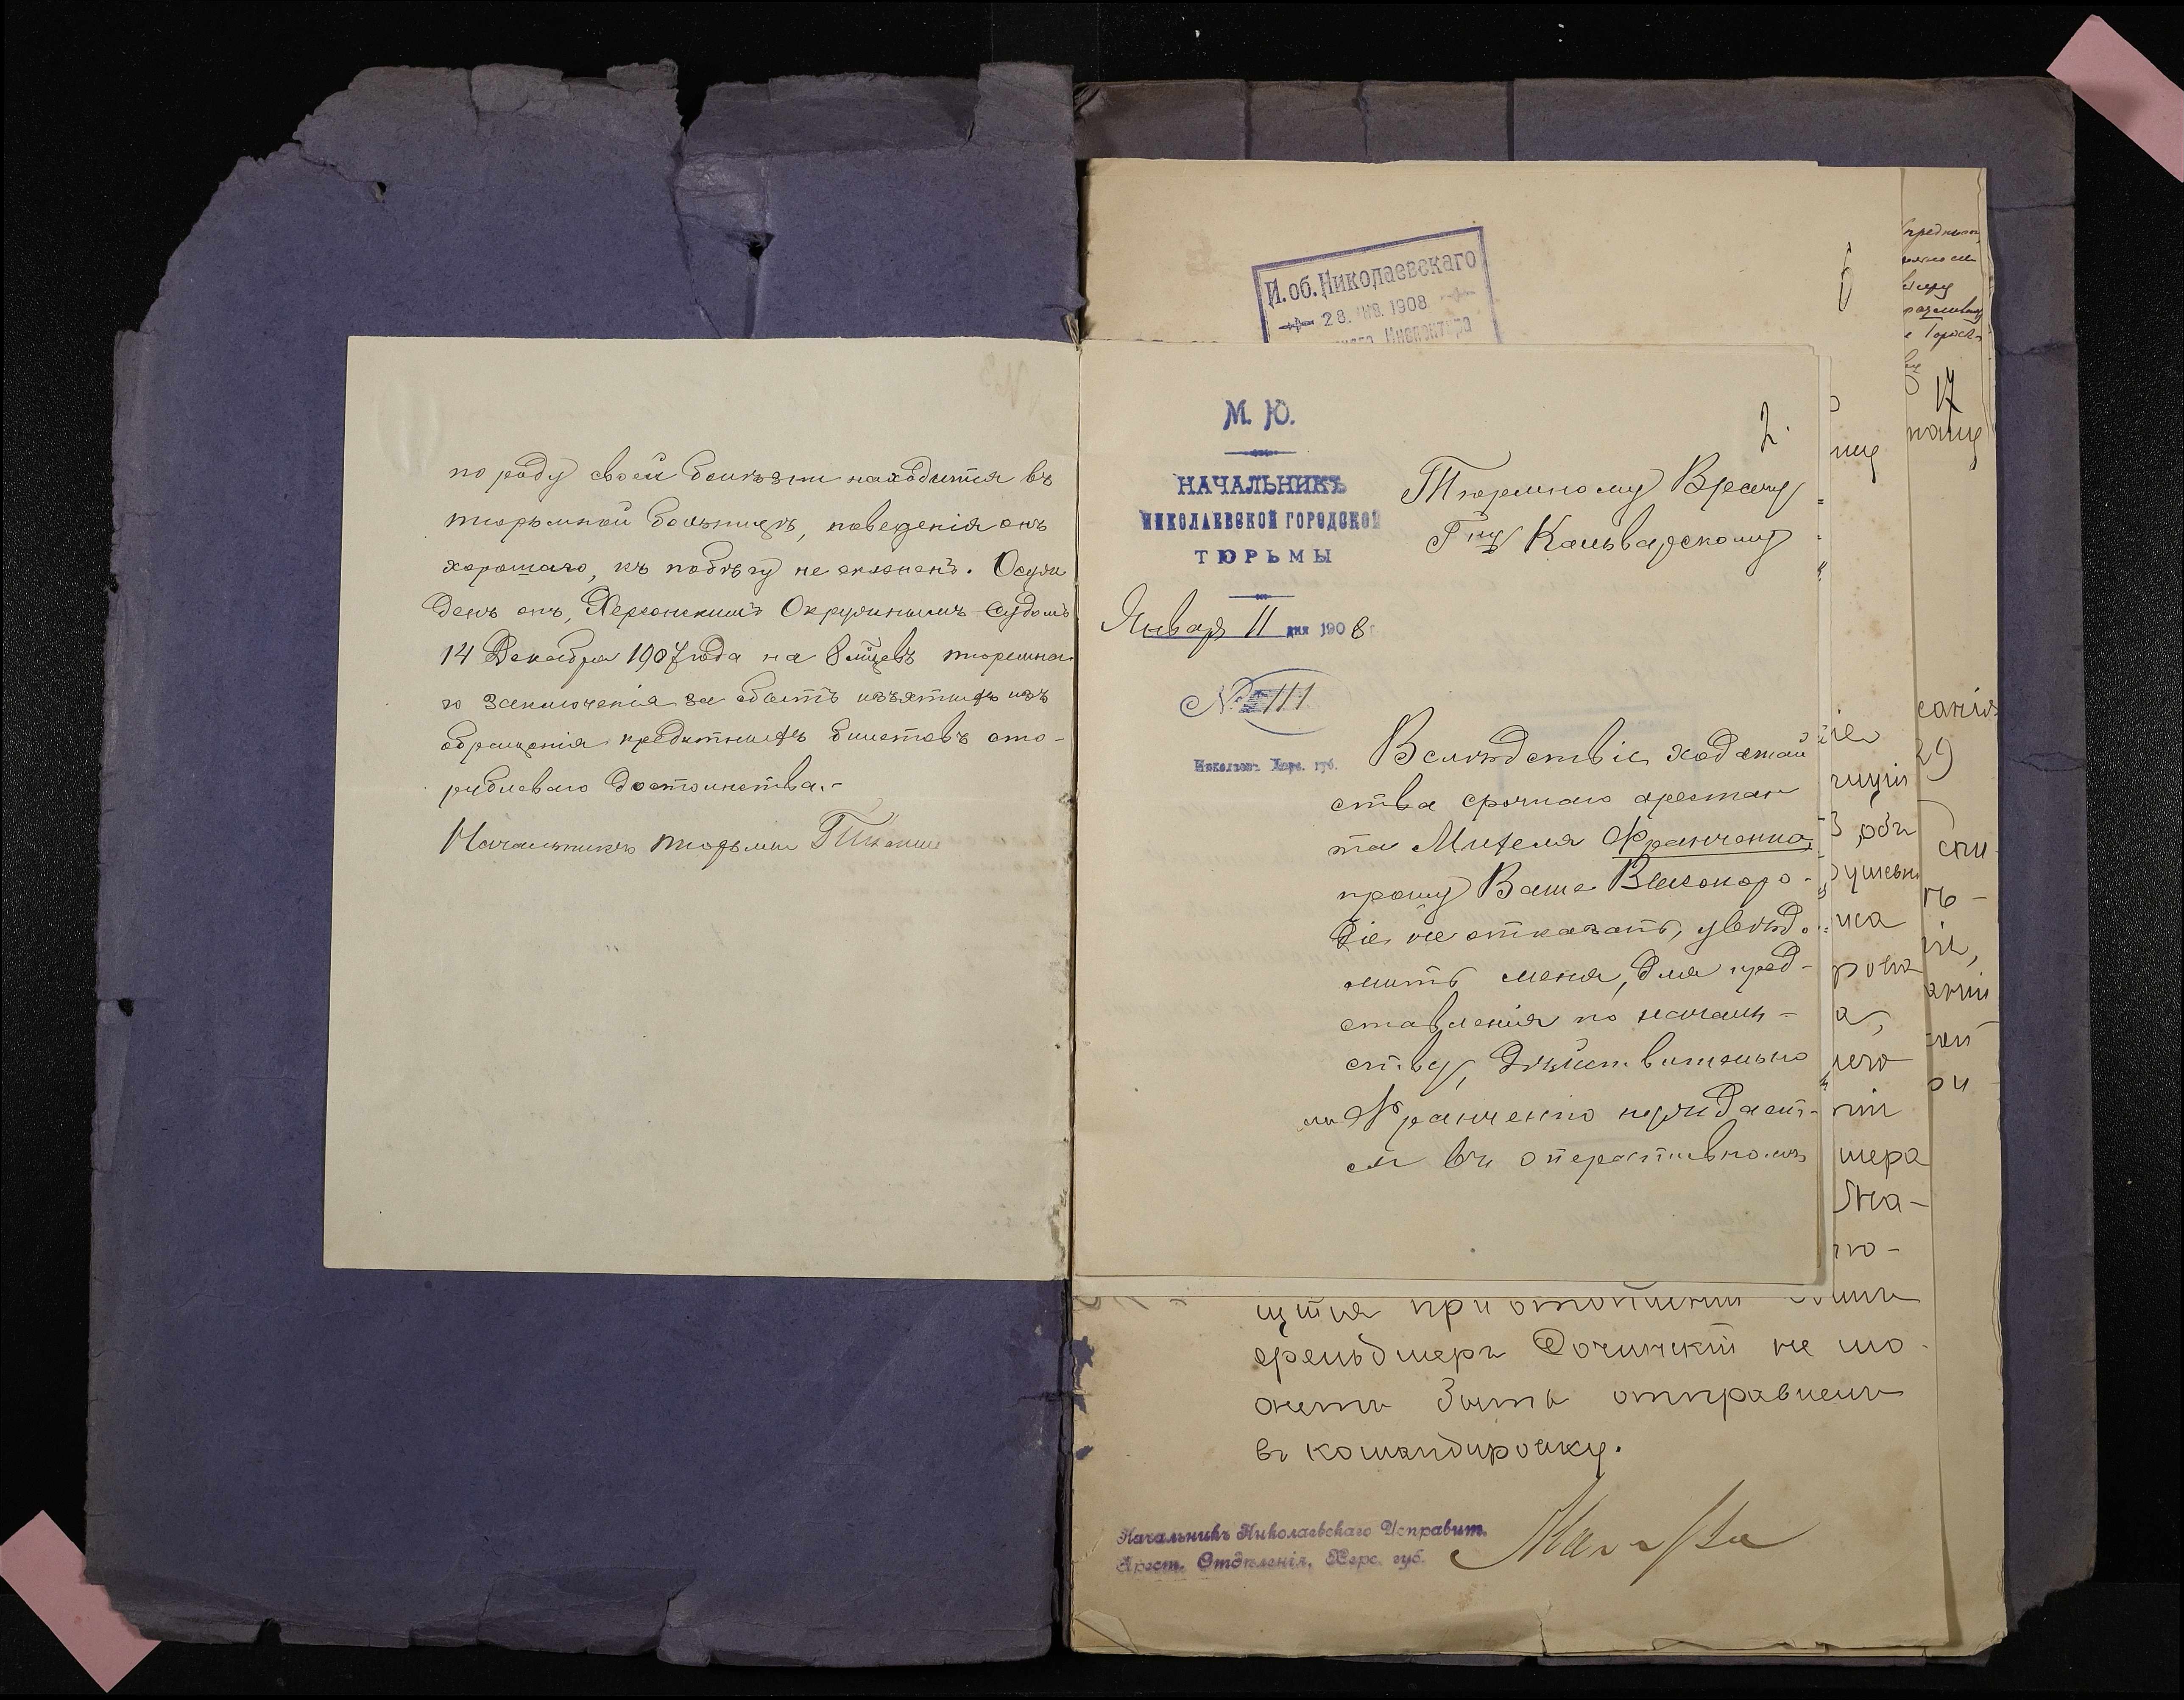 по роду своей болѣзни находится въ
тюрьмной больницѣ, поведенія онъ
хорошаго, къ побѣгу не склоненъ. Осуж
денъ онъ, Херсонскимъ Окружнымъ Судомъ
14 Декабря 1907 года на 8 мѣцевъ тюремна
го заключенія за сбытъ изъятыхъ изъ
обращенія кредитныхъ билетовъ сто-
рублеваго достоинства.-
Начальникъ тюрьмы
И. об. Николаевскаго
28. ЯНВ. 1908
Инспектора
М. Ю.
НАЧАЛЬНИКЪ
НИКОЛАЕВСКОЙ ГОРОДСКОЙ
ТЮРЬМЫ
Января 11 дня 1908
№ 111
Николаевъ Херс. губ.
2.
Тюремному Врачу
Гну Кальварскому
Вслѣдствіе ходатай
ства срочнаго арестан
та Михеля Франченко,
прошу Ваше Высокоро-
діе не отказать, увѣдо-
мить меня, для пред-
ставленія по началь-
ству, дѣйствительно
ли Франченко нуждает-
ся въ оперативномъ
6
17
щійся при отдѣленіи
фельдшеръ не мо-
жетъ быть отправленъ
въ командировку.
Начальникъ Николаевскаго Исправит.
Арест. Отдѣленія, Херс. губ.